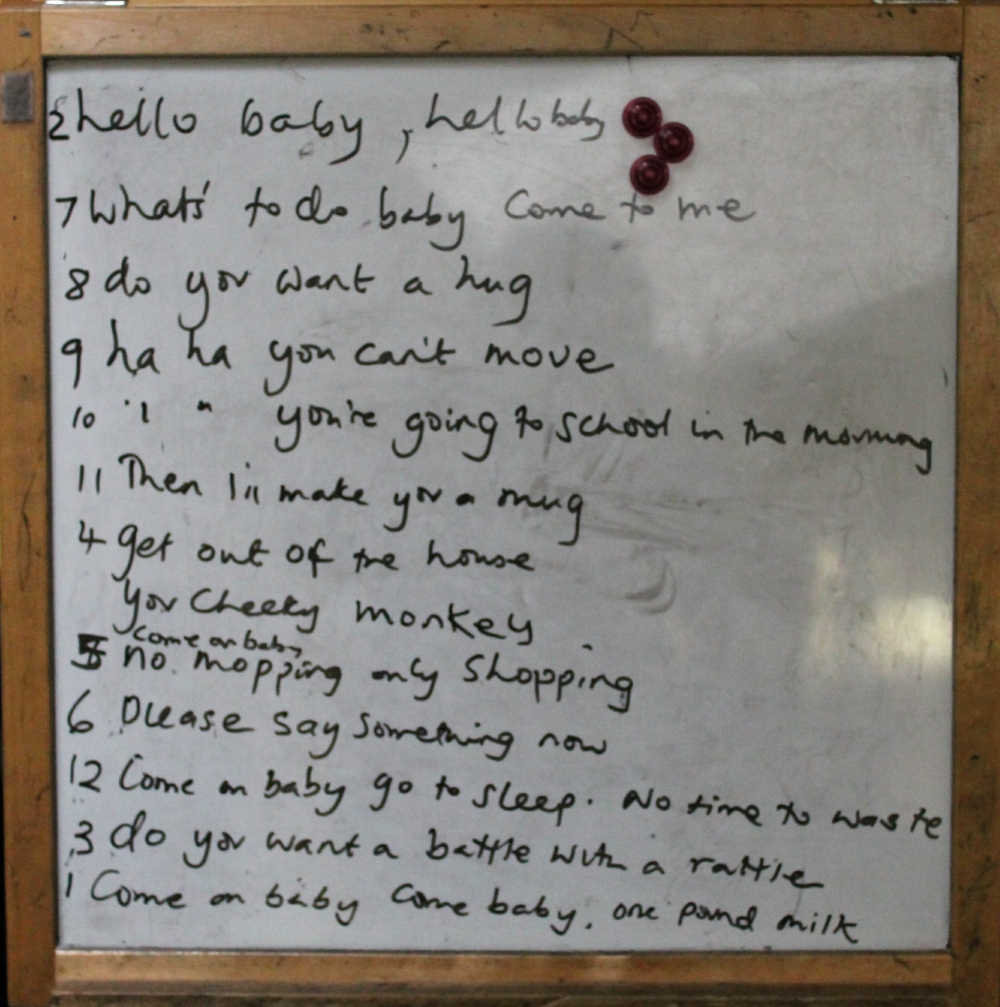 2 hello baby, hello baby
7 What's to do baby Come to me
8 do you want a hug
9 ha ha you can't move
10 " " you're going to school in the morning
11 Then I'll make you a mug
4 get out of the house
you cheeky monkey
come on baby
5 no mopping only shopping
6 Please say something now
12 Come on baby go to sleep. No time to waste
3 do you want a battle with a rattle
1 Come on baby come baby, one pound milk